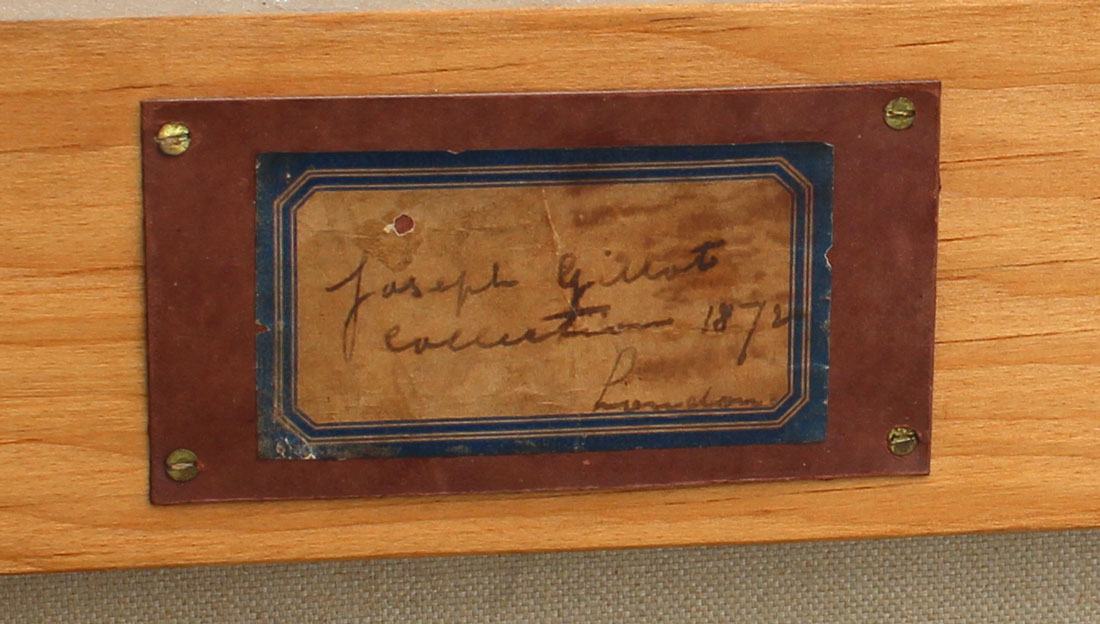 Joseph Gillot
Collection 1872
London